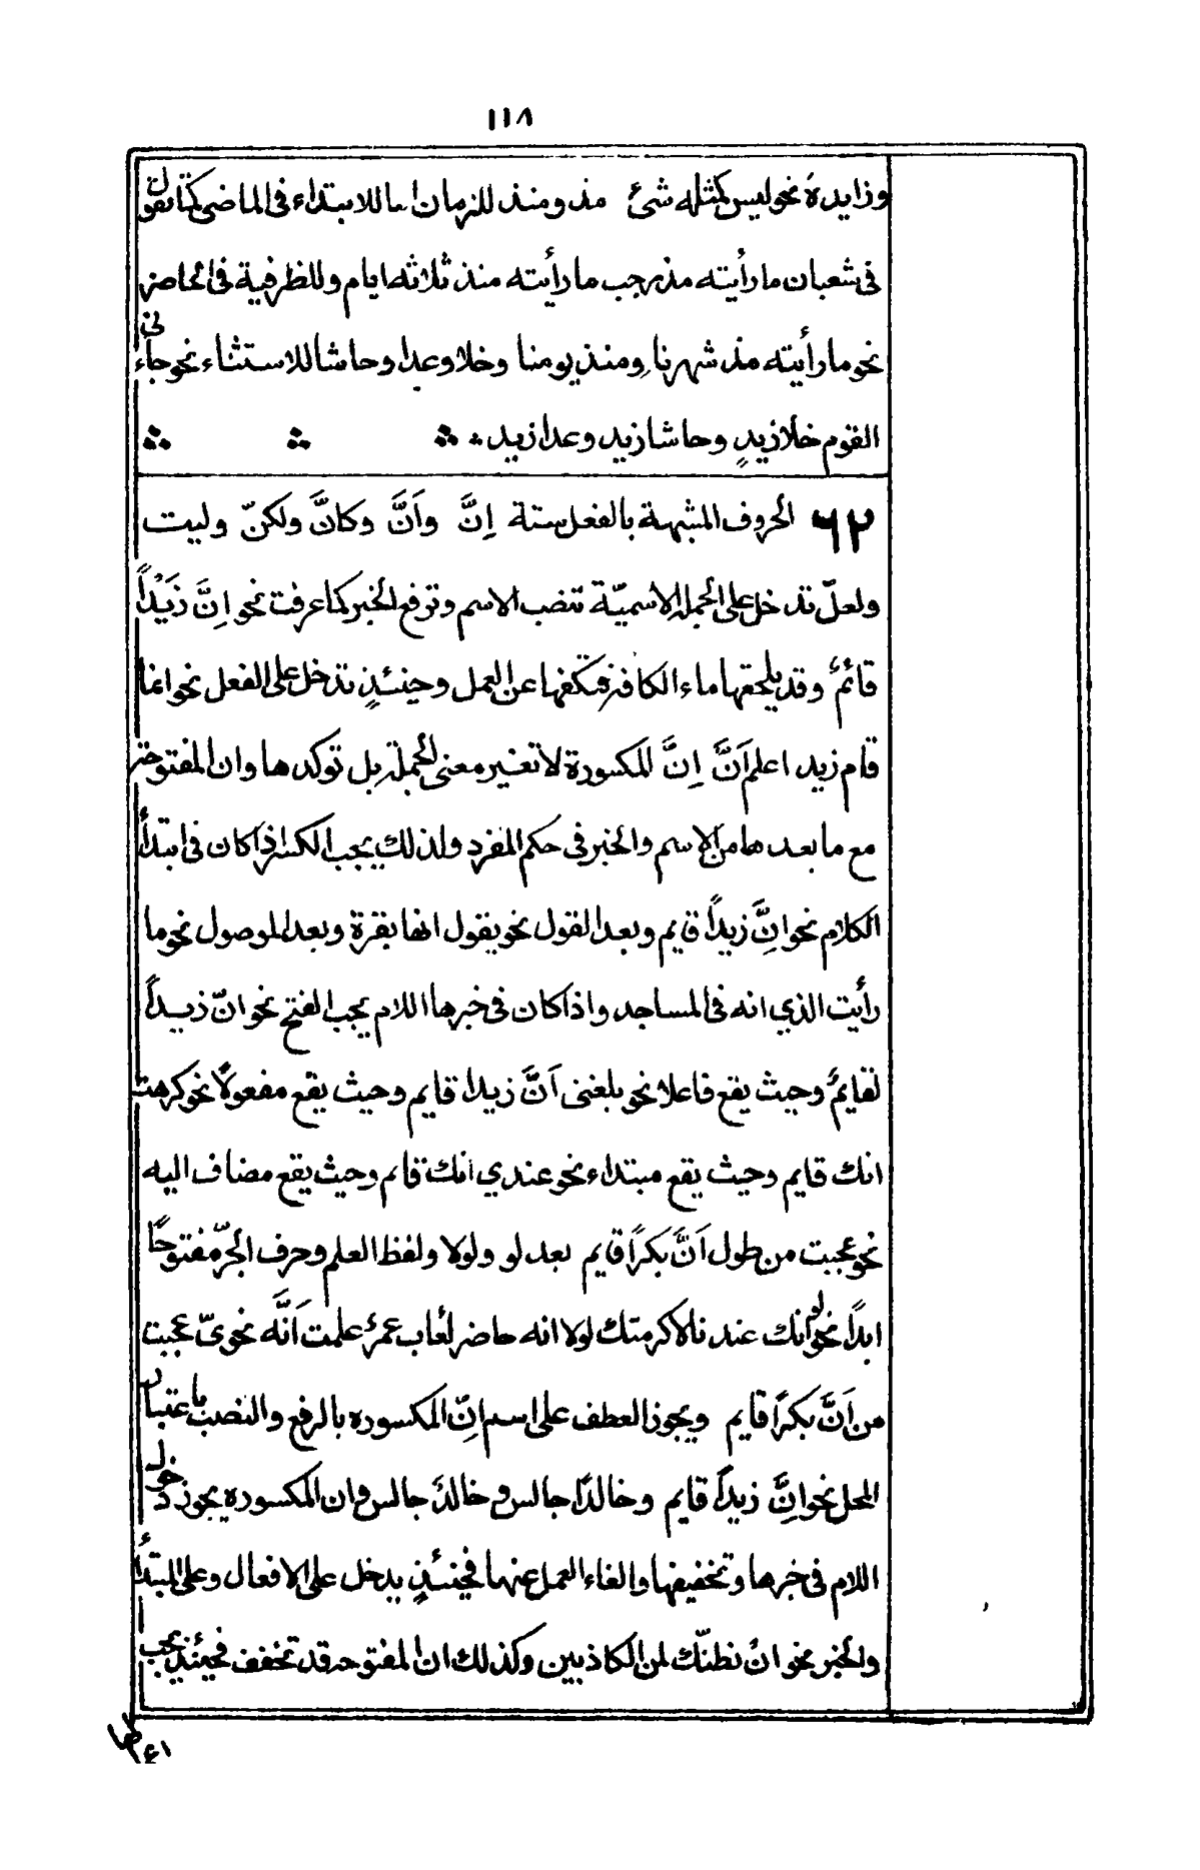 ١١٨
وزايدة نحو ليس كمثله شئ مذ ومنذ للزمان اما للابتداء فى الماضى كما تقول
فى شعبان ما رأيته مذ رجب ما رأيته منذ ثلاثه ايام وللظرفية فى الحاضر
نحو ما رأيته مذ شهرنا ومنذ يومنا وخلا وعدا وحاشا للاستثناء نحو جاءنى
القوم خلا زيدٍ وحاشا زيد وعدا زيد
٦٢ الحروف المشبهة بالفعل ستة اِنَّ واَنَّ وكانَّ ولكنّ وليت
ولعلّ تدخل على الجملة الاسميّة تنصب الاسم وترفع الخبر كما عرفت نحو اِنَّ زَيْدًا
قائمٌ وقد يلحقها ماء الكافة فتكفها عن العمل وحينئذٍ تدخل على الفعل نحو انما
قام زيد اعلم اَنَّ اِنَّ المكسورة لا تغير معنى الجملة بل توكدها وان المفتوحة
مع ما بعدها من الاسم والخبر فى حكم المفرد ولذلك يجب الكسر اذا كان فى ابتدأ
الكلام نحو اِنَّ زيداً قايم وبعد القول نحو يقول انها بقرة وبعد الموصول نحو ما
رأيت الذي انه فى المساجد واذا كان فى خبرها اللام يجب الفتح نحو انّ زيداً
لقايمٌ وحيث يقع فاعلا نحو بلغنى اَنَّ زيدا قايم وحيث يقع مفعولاً نحو كرهت
انك قايم وحيث يقع مبتداء نحو عندي انك قايم وحيث يقع مضاف اليه
نحو عجبت من طول اَنَّ بكرًا قايم بعد لو ولولا ولفظ العلم وحرف الجرّ مفتوحًا
ابدًا نحو لو انك عندنا لاكرمتك لولا انه حاضر لغاب عمرٌ علمت اَنَّه نحويّ عجبت
من اَنَّ بكرًا قايم ويجوز العطف على اسم اِنّ المكسوره بالرفع والنصب باعتبار
المحل نحو اِنَّ زيداً قايم وخالدًا جالس وخالدٌ جالس وان المكسوره يجوز دخول
اللام فى خبرها وتخفيفها والغاء العمل عنها فحينئذٍ يدخل على الافعال وعلى المبتدأ
والخبر نحو انْ نظنّك لمن الكاذبين وكذلك ان المفتوحه قد تخفف فحينئذ يجب